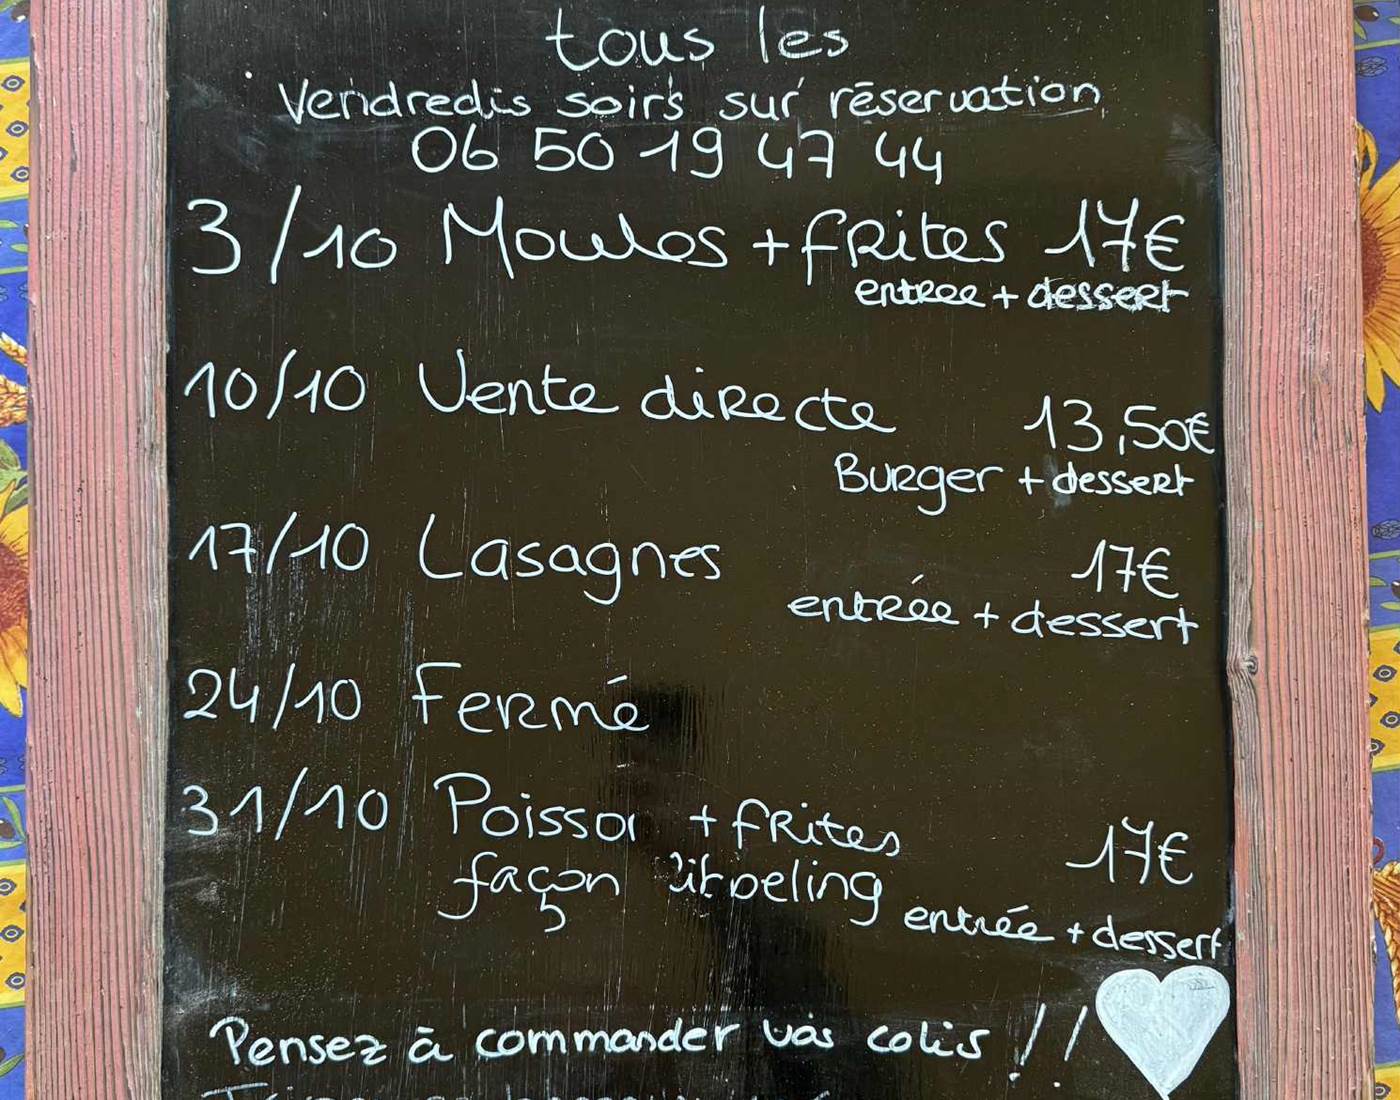 tous les
Vendredis soirs sur réservation
06 50 19 47 44
3/10 Moules + frites 17€
entree + dessert
10/10 Vente directe 13,50€
Burger + dessert
17/10 Lasagnes 17€
entrée + dessert
24/10 Fermé
31/10 Poisson + frites 17€
façon
entrée + dessert
Pensez à commander vos colis !!